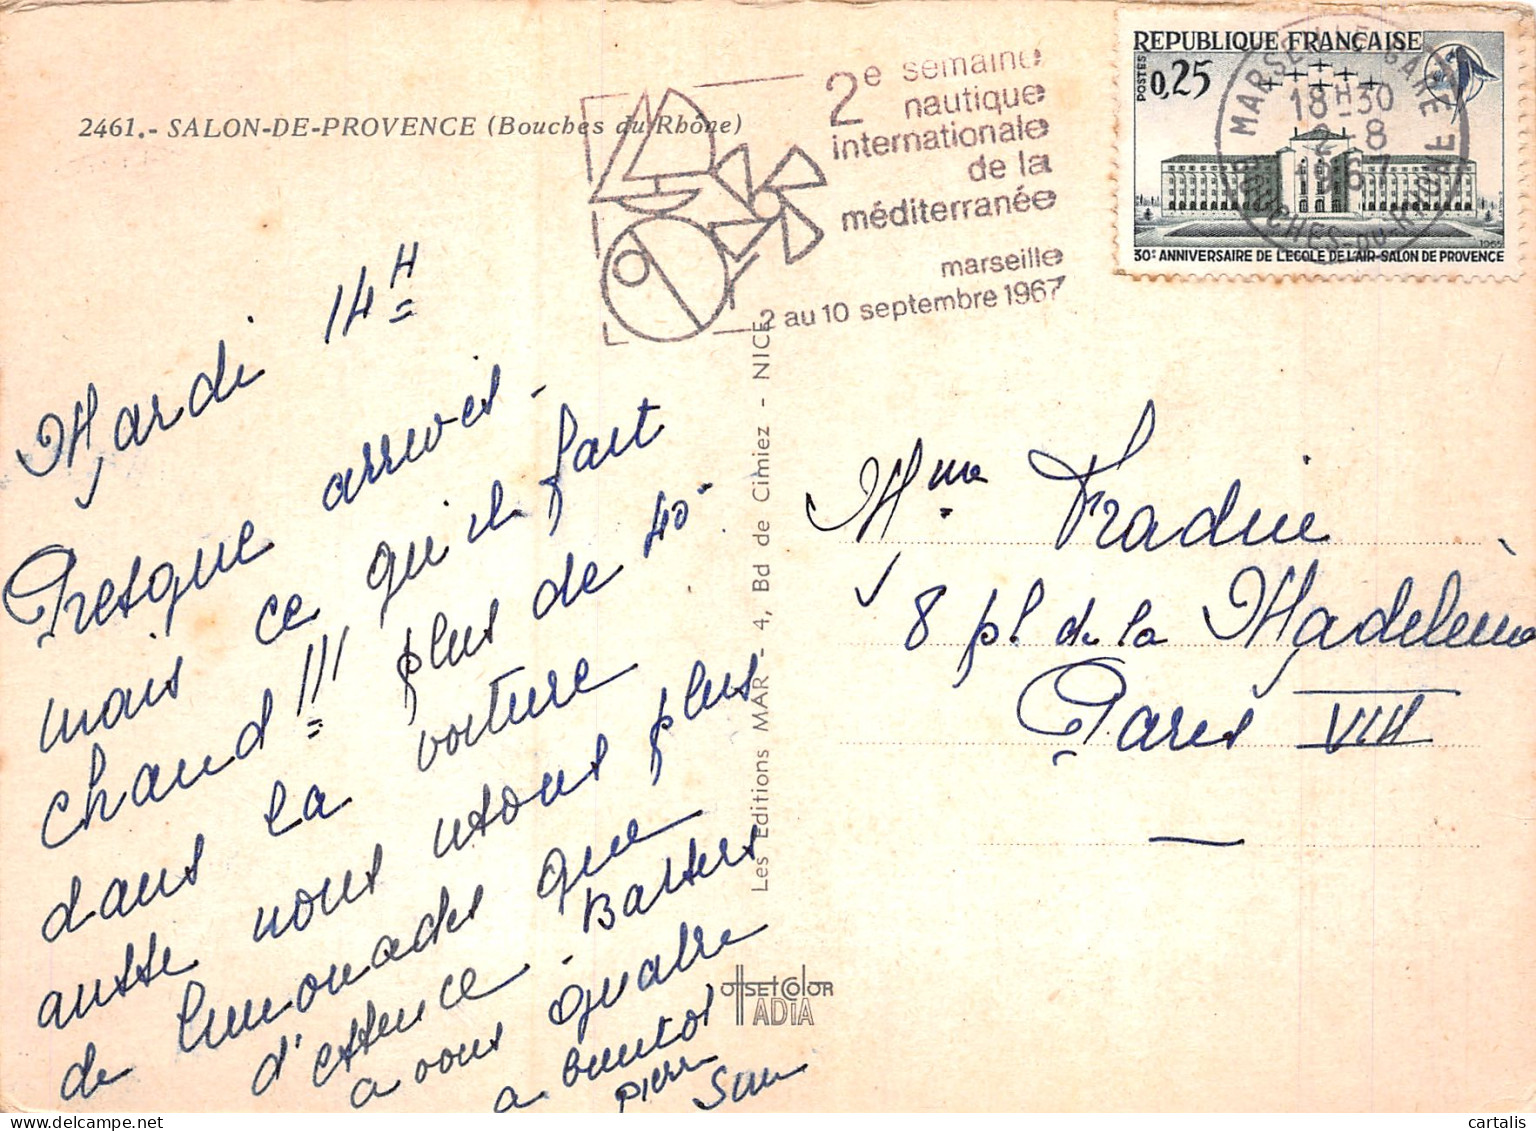 2461.- SALON-DE-PROVENCE (Bouches du Rhône)
2e semaine
nautique
internationale
de la
méditerranée
marseille
2 au 10 septembre 1967
REPUBLIQUE FRANÇAISE
POSTES
0,25
30e ANNIVERSAIRE DE L'ECOLE DE L'AIR-SALON DE PROVENCE
1965
MARSEILLE GARE
18H30
2-8
1967
BOUCHES-DU-RHONE
Mardi 14H
Presque arrivés -
mais ce qu'il fait
chaud !!! plus de 40°
dans la voiture
aussi nous usons plus
de limonades que
d'essence - Baisers
a vous quatre
a bientot
Pierre
Les Editions MAR - 4, Bd de Cimiez - NICE
Mme Fradin
8 pl. de la Madeleine
Paris VIII
OFFSETCOLOR
IADIA
cartalis